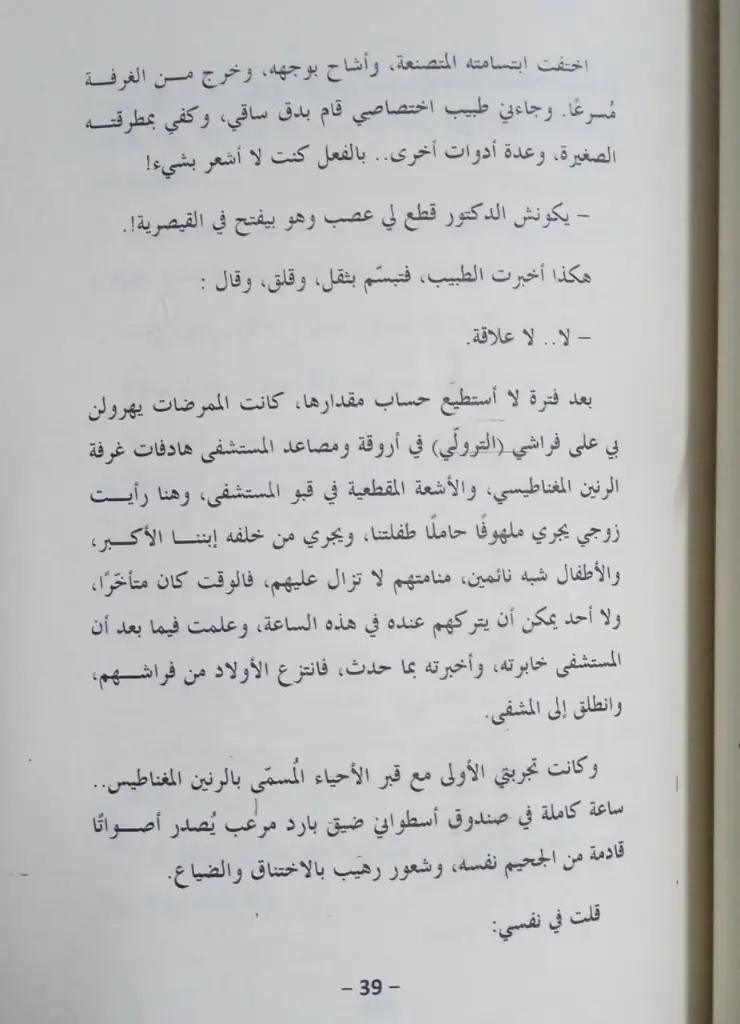 اختفت ابتسامته المتصنعة، وأشاح بوجهه، وخرج من الغرفة
مُسرعًا. وجاءني طبيب اختصاصي قام بدق ساقي، وكفي بمطرقته
الصغيرة، وعدة أدوات أخرى.. بالفعل كنت لا أشعر بشيء!
– يكونش الدكتور قطع لي عصب وهو بيفتح في القيصرية!.
هكذا أخبرت الطبيب، فتبسّم بثقل، وقلق، وقال :
– لا.. لا علاقة.
بعد فترة لا أستطيع حساب مقدارها، كانت الممرضات يهرولن
بي على فراشي (الترولّي) في أروقة ومصاعد المستشفى هادفات غرفة
الرنين المغناطيسي، والأشعة المقطعية في قبو المستشفى، وهنا رأيت
زوجي يجري ملهوفًا حاملًا طفلتنا، ويجري من خلفه إبننا الأكبر،
والأطفال شبه نائمين، منامتهم لا تزال عليهم، فالوقت كان متأخّرًا،
ولا أحد يمكن أن يتركهم عنده في هذه الساعة، وعلمت فيما بعد أن
المستشفى خابرته، وأخبرته بما حدث، فانتزع الأولاد من فراشهم،
وانطلق إلى المشفى.
وكانت تجربتي الأولى مع قبر الأحياء المُسمّى بالرنين المغناطيس..
ساعة كاملة في صندوق أسطواني ضيق بارد مرعب يُصدر أصواتًا
قادمة من الجحيم نفسه، وشعور رهيب بالاختناق والضياع.
قلت في نفسي:
– 39 –